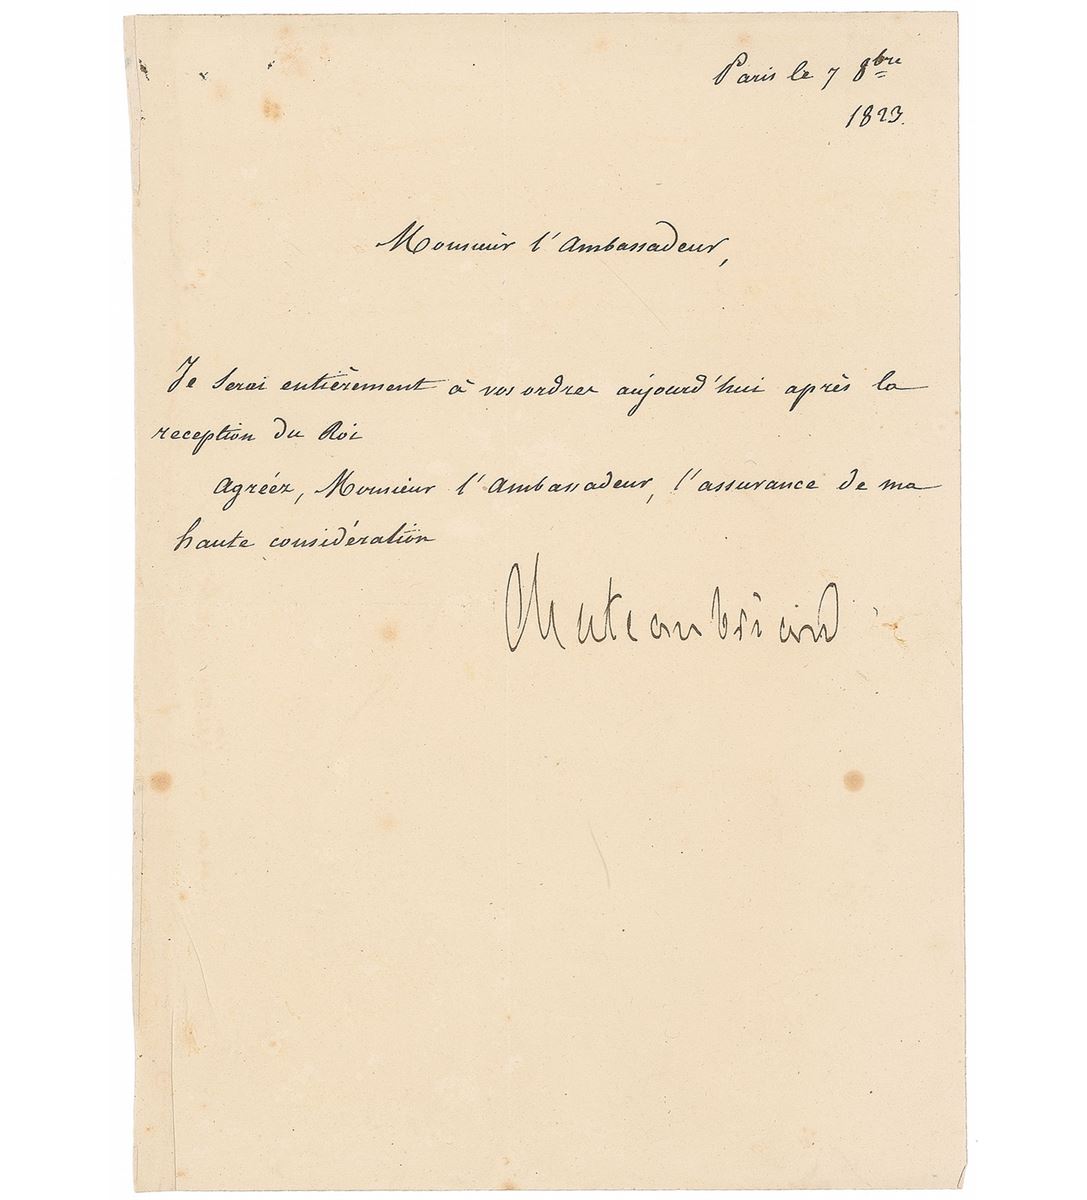 Paris le 7 8bre
1823.
Monsieur l'Ambassadeur,
Je serai entièrement à vos ordres aujourd'hui après la
reception du Roi
Agréez, Monsieur l'Ambassadeur, l'assurance de ma
haute considération
Chateaubriand